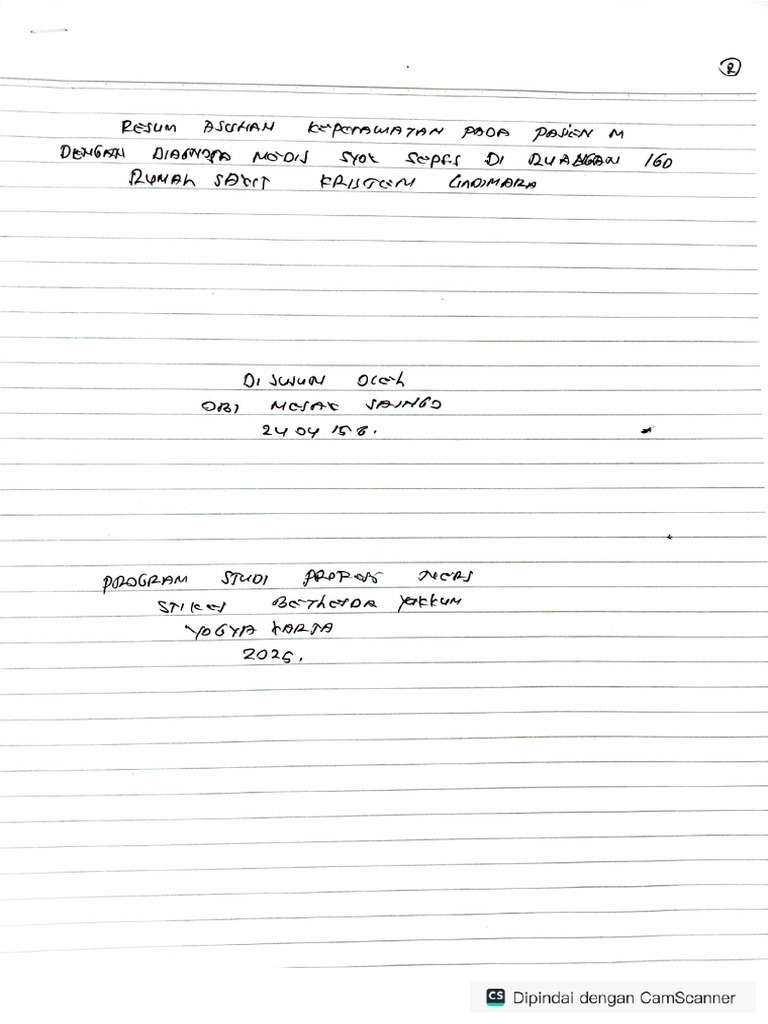 2
RESUM ASUHAN KEPERAWATAN PADA PASIEN M
DENGAN DIAGNOSA MEDIS SYOK SEPSIS DI RUANGAN IGD
RUMAH SAKIT KRISTEN LINDIMARA
DI SUSUN OLEH
OBI MESAK SAINGO
24 04 15 8.
PROGRAM STUDI PROFESI NERS
STIKES BETHESDA YAKKUM
YOGYA KARTA
2025.
CS Dipindai dengan CamScanner